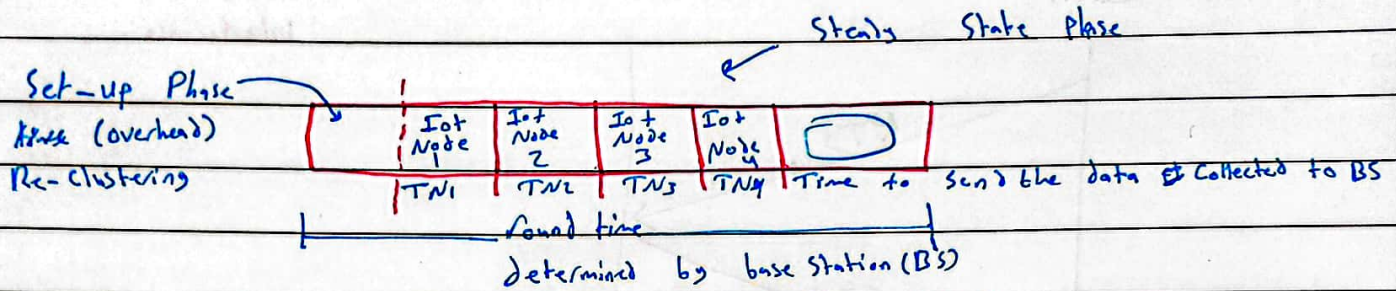 Steady State Phase
Set-up Phase
(overhead)
Re-Clustering
IoT Node 1
IoT Node 2
IoT Node 3
IoT Node 4
TN1 TN2 TN3 TN4 Time to send the data Collected to BS
round time
determined by base station (BS)